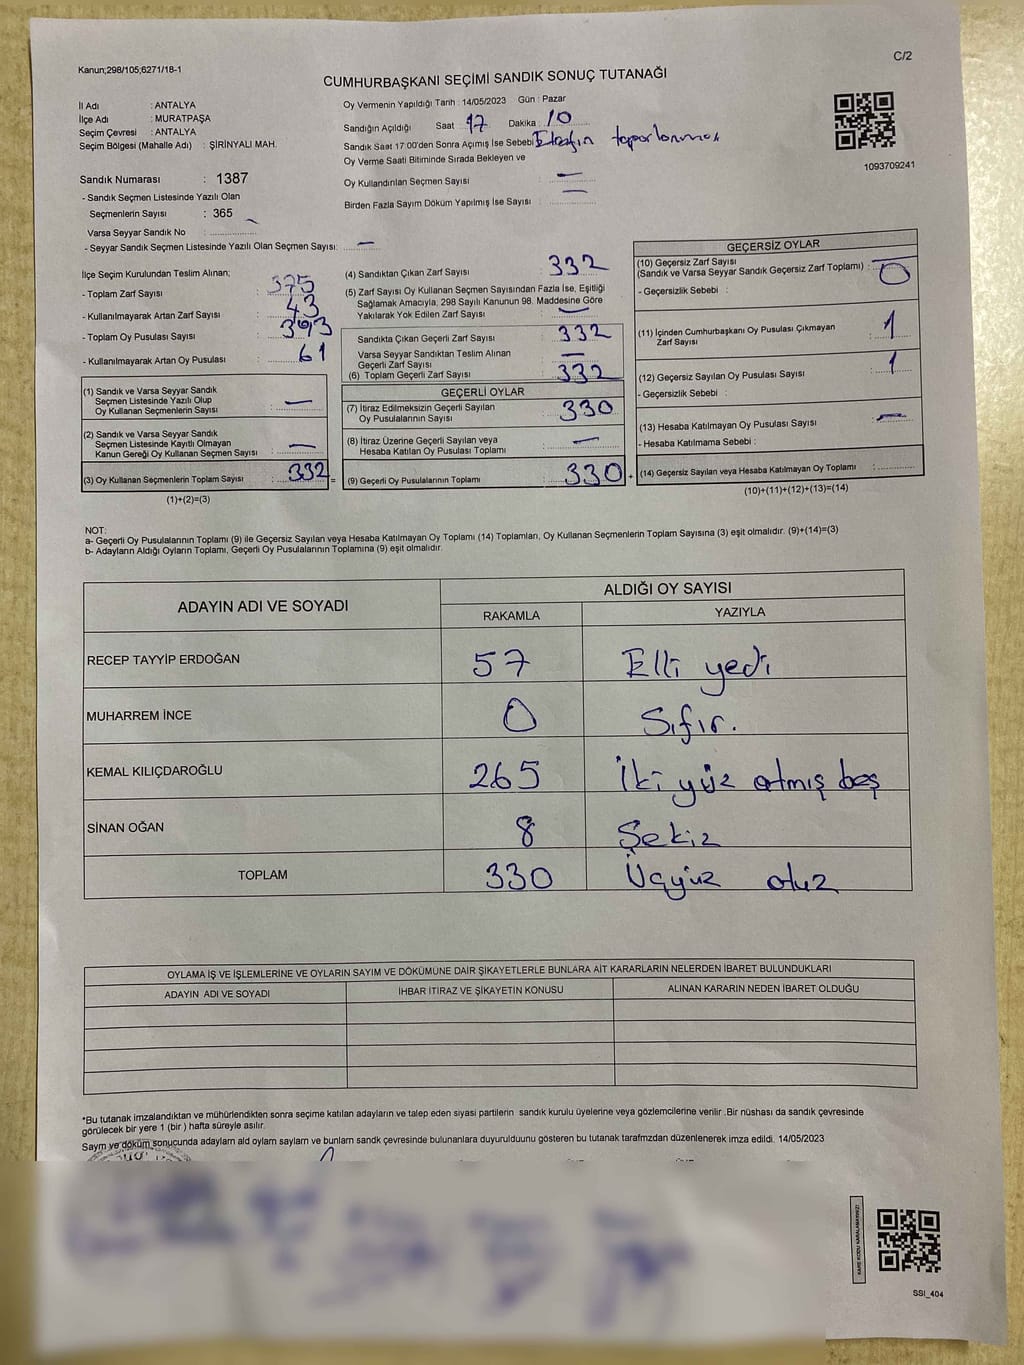 Kanun;298/105;6271/18-1
C/2
CUMHURBAŞKANI SEÇİMİ SANDIK SONUÇ TUTANAĞI
İl Adı : ANTALYA
İlçe Adı : MURATPAŞA
Seçim Çevresi : ANTALYA
Seçim Bölgesi (Mahalle Adı) : ŞİRİNYALI MAH.
Oy Vermenin Yapıldığı Tarih : 14/05/2023 Gün : Pazar
Sandığın Açıldığı Saat 17 Dakika : 10
Sandık Saat 17:00'den Sonra Açımış İse Sebebi Etrafın toparlanması
Oy Verme Saati Bitiminde Sırada Bekleyen ve
Oy Kullandırılan Seçmen Sayısı : —
Birden Fazla Sayım Döküm Yapılmış İse Sayısı : —
1093709241
Sandık Numarası : 1387
- Sandık Seçmen Listesinde Yazılı Olan
Seçmenlerin Sayısı : 365
Varsa Seyyar Sandık No :
- Seyyar Sandık Seçmen Listesinde Yazılı Olan Seçmen Sayısı: —
İlçe Seçim Kurulundan Teslim Alınan;
- Toplam Zarf Sayısı : 375
- Kullanılmayarak Artan Zarf Sayısı : 43
- Toplam Oy Pusulası Sayısı : 393
- Kullanılmayarak Artan Oy Pusulası : 61
(1) Sandık ve Varsa Seyyar Sandık
Seçmen Listesinde Yazılı Olup
Oy Kullanan Seçmenlerin Sayısı : —
(2) Sandık ve Varsa Seyyar Sandık
Seçmen Listesinde Kayıtlı Olmayan
Kanun Gereği Oy Kullanan Seçmen Sayısı : —
(3) Oy Kullanan Seçmenlerin Toplam Sayısı : 332 =
(1)+(2)=(3)
(4) Sandıktan Çıkan Zarf Sayısı : 332
(5) Zarf Sayısı Oy Kullanan Seçmen Sayısından Fazla İse, Eşitliği
Sağlamak Amacıyla, 298 Sayılı Kanunun 98. Maddesine Göre
Yakılarak Yok Edilen Zarf Sayısı : —
Sandıkta Çıkan Geçerli Zarf Sayısı : 332
Varsa Seyyar Sandıktan Teslim Alınan
Geçerli Zarf Sayısı : —
(6) Toplam Geçerli Zarf Sayısı : 332
GEÇERLİ OYLAR
(7) İtiraz Edilmeksizin Geçerli Sayılan
Oy Pusulalarının Sayısı : 330
(8) İtiraz Üzerine Geçerli Sayılan veya
Hesaba Katılan Oy Pusulası Toplamı : —
(9) Geçerli Oy Pusulalarının Toplamı : 330 +
GEÇERSİZ OYLAR
(10) Geçersiz Zarf Sayısı
(Sandık ve Varsa Seyyar Sandık Geçersiz Zarf Toplamı) : 0
- Geçersizlik Sebebi :
(11) İçinden Cumhurbaşkanı Oy Pusulası Çıkmayan
Zarf Sayısı : 1
(12) Geçersiz Sayılan Oy Pusulası Sayısı : 1
- Geçersizlik Sebebi :
(13) Hesaba Katılmayan Oy Pusulası Sayısı : —
- Hesaba Katılmama Sebebi :
(14) Geçersiz Sayılan veya Hesaba Katılmayan Oy Toplamı :
(10)+(11)+(12)+(13)=(14)
NOT:
a- Geçerli Oy Pusulalarının Toplamı (9) ile Geçersiz Sayılan veya Hesaba Katılmayan Oy Toplamı (14) Toplamları, Oy Kullanan Seçmenlerin Toplam Sayısına (3) eşit olmalıdır. (9)+(14)=(3)
b- Adayların Aldığı Oyların Toplamı, Geçerli Oy Pusulalarının Toplamına (9) eşit olmalıdır.
ADAYIN ADI VE SOYADI
ALDIĞI OY SAYISI
RAKAMLA YAZIYLA
RECEP TAYYİP ERDOĞAN 57 Elli yedi
MUHARREM İNCE 0 Sıfır.
KEMAL KILIÇDAROĞLU 265 İki yüz atmış beş
SİNAN OĞAN 8 Şekiz
TOPLAM 330 Üçyüz otuz
OYLAMA İŞ VE İŞLEMLERİNE VE OYLARIN SAYIM VE DÖKÜMÜNE DAİR ŞİKAYETLERLE BUNLARA AİT KARARLARIN NELERDEN İBARET BULUNDUKLARI
ADAYIN ADI VE SOYADI İHBAR İTİRAZ VE ŞİKAYETİN KONUSU ALINAN KARARIN NEDEN İBARET OLDUĞU
*Bu tutanak imzalandıktan ve mühürlendikten sonra seçime katılan adayların ve talep eden siyasi partilerin sandık kurulu üyelerine veya gözlemcilerine verilir .Bir nüshası da sandık çevresinde
görülecek bir yere 1 (bir ) hafta süreyle asılır.
Sayım ve döküm sonucunda adayların ald oylarn saylarn ve bunlarn sandk çevresinde bulunanlara duyurulduunu gösteren bu tutanak tarafmzdan düzenlenerek imza edildi. 14/05/2023
KARE KODU KARALAMAYINIZ!
SSI_404